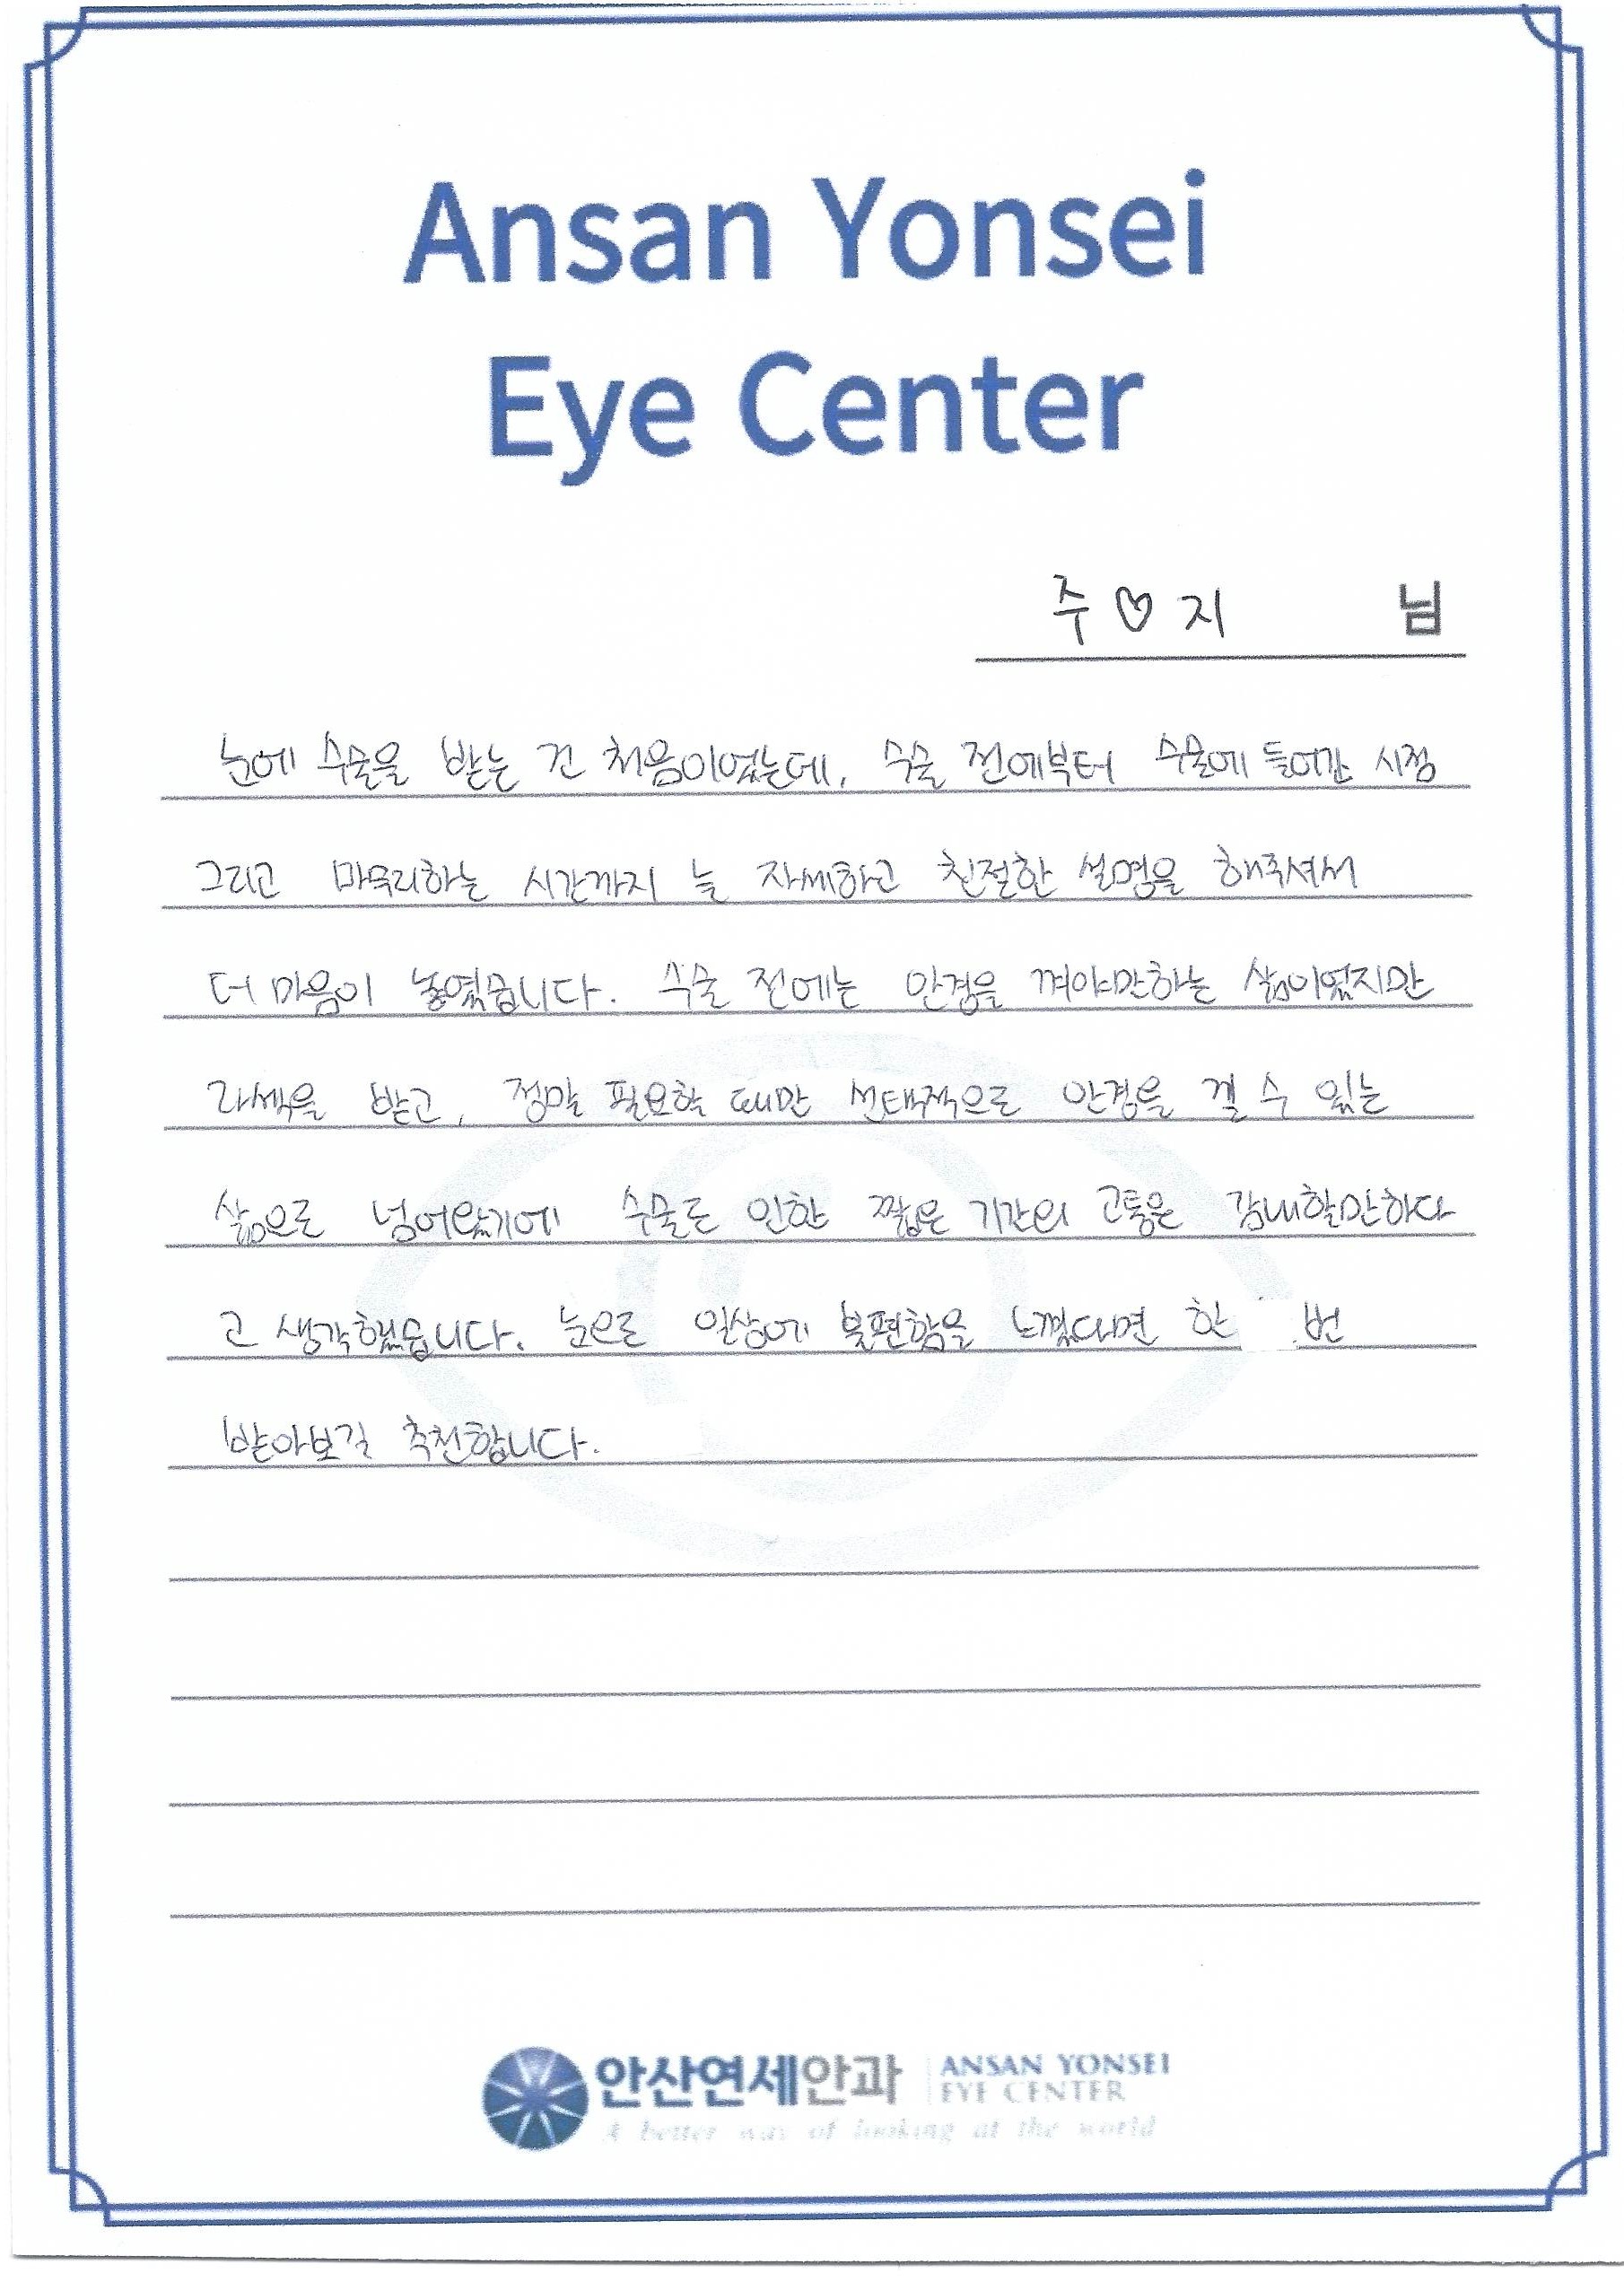 Ansan Yonsei
Eye Center
주♡지 님
눈에 수술을 받는 건 처음이었는데, 수술 전에부터 수술에 들어간 시점
그리고 마무리하는 시간까지 늘 자세하고 친절한 설명을 해주셔서
더 마음이 놓였습니다. 수술 전에는 안경을 껴야만하는 삶이었지만
라섹을 받고, 정말 필요할 때만 선택적으로 안경을 낄 수 있는
삶으로 넘어왔기에 수술로 인한 짧은 기간의 고통은 감내할만하다
고 생각했습니다. 눈으로 일상에 불편함을 느꼈다면 한 번
받아보길 추천합니다.
안산연세안과 ANSAN YONSEI
EYE CENTER
A better way of looking at the world